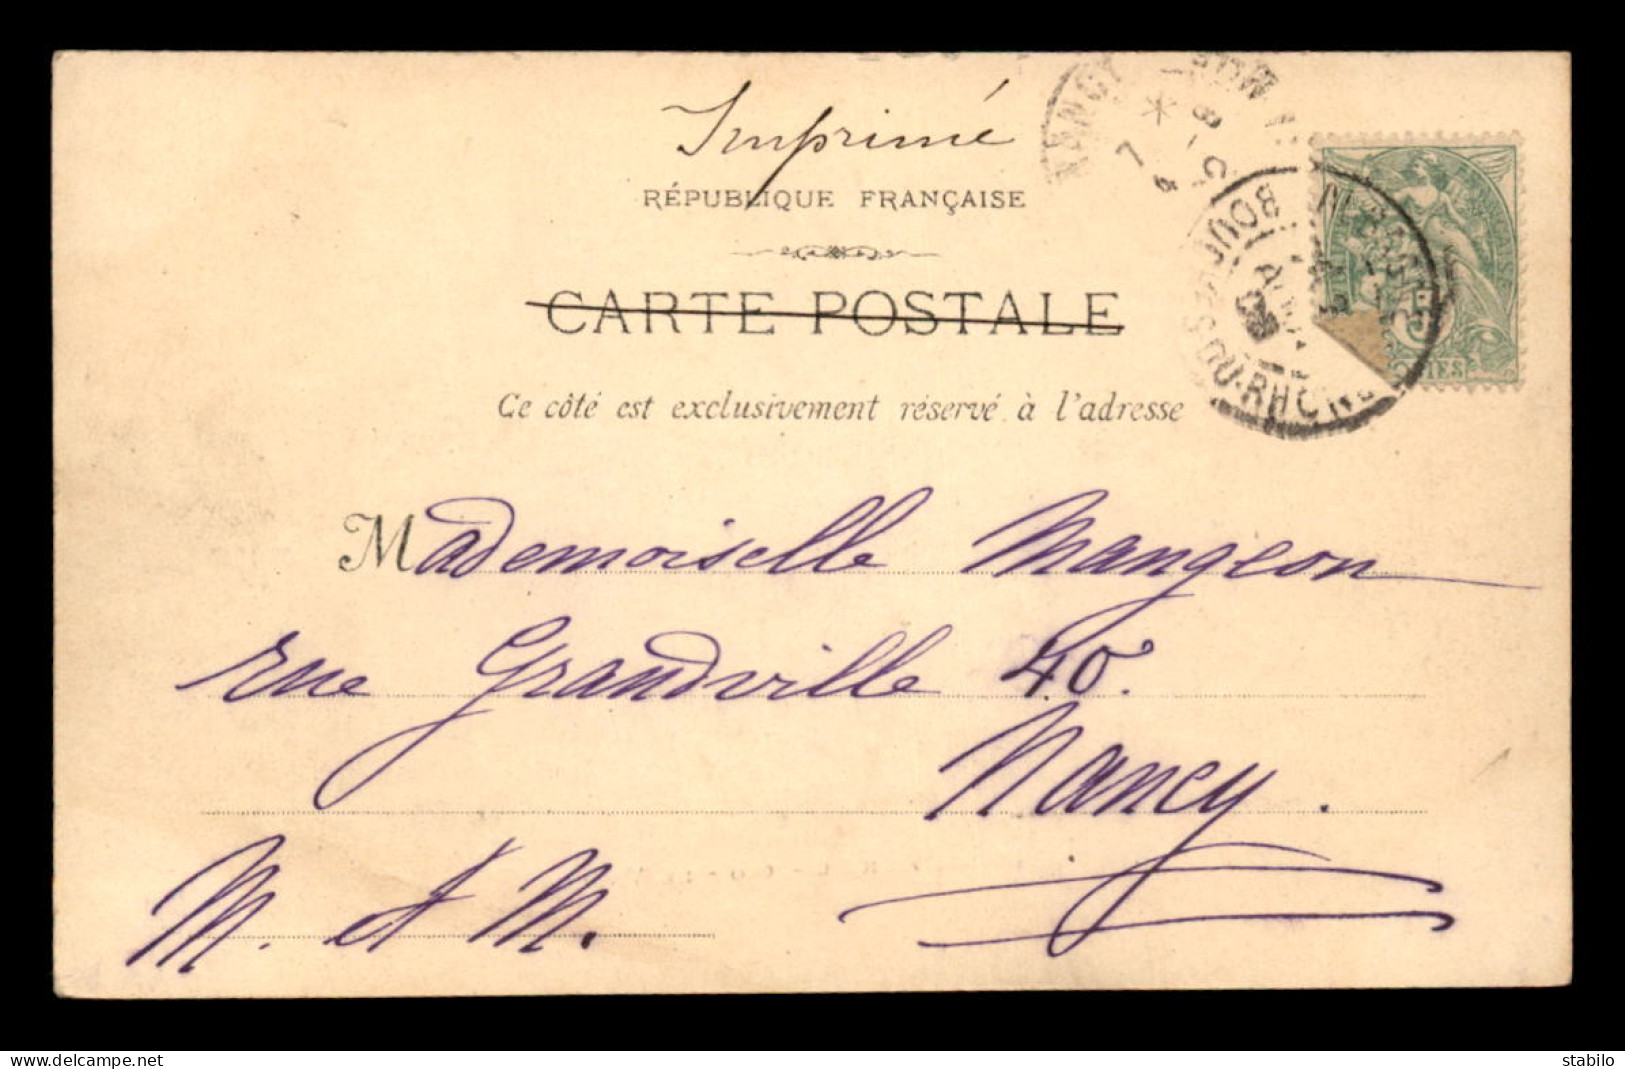 Imprimé
RÉPUBLIQUE FRANÇAISE
CARTE POSTALE
Ce côté est exclusivement réservé à l'adresse
Mademoiselle Mangeon
rue Grandville 40.
Nancy.
M. et M.
NANCY
BOUCHES-DU-RHONE
5
delcampe.net
stabilo